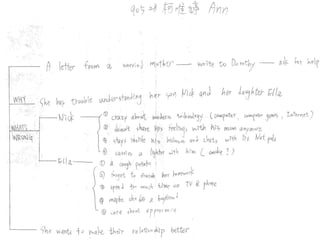 905 01 柯惟婷 Ann
A letter from a worried mother — write to Dorothy — ask for help
WHY She has trouble understanding her son Nick and her daughter Ella
WHAT'S WRONG
Nick
① crazy about modern technology (computer, computer games, Internet)
② doesn't share his feelings with his mom anymore
③ stays inside his bedroom and chats with his Net pals
④ carries a lighter with him (smoke?)
Ella
① a couch potato!
② forgets to do her homework
③ spend too much time on TV & phone
④ maybe she has a boyfriend
⑤ care about appearance
She wants to make their relationship better